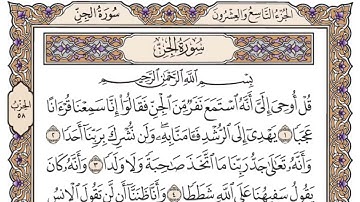 الجزء التاسع والعشرون
سورة الجن
سورة الجن
بِسْمِ اللَّهِ الرَّحْمَٰنِ الرَّحِيمِ
قُلْ أُوحِيَ إِلَيَّ أَنَّهُ اسْتَمَعَ نَفَرٌ مِّنَ الْجِنِّ فَقَالُوا إِنَّا سَمِعْنَا قُرْآنًا
عَجَبًا ١ يَهْدِي إِلَى الرُّشْدِ فَآمَنَّا بِهِ وَلَن نُّشْرِكَ بِرَبِّنَا أَحَدًا ٢
وَأَنَّهُ تَعَالَىٰ جَدُّ رَبِّنَا مَا اتَّخَذَ صَاحِبَةً وَلَا وَلَدًا ٣ وَأَنَّهُ كَانَ
يَقُولُ سَفِيهُنَا عَلَى اللَّهِ شَطَطًا ٤ وَأَنَّا ظَنَنَّا أَن لَّن تَقُولَ الْإِنسُ
الحزب
٥٨